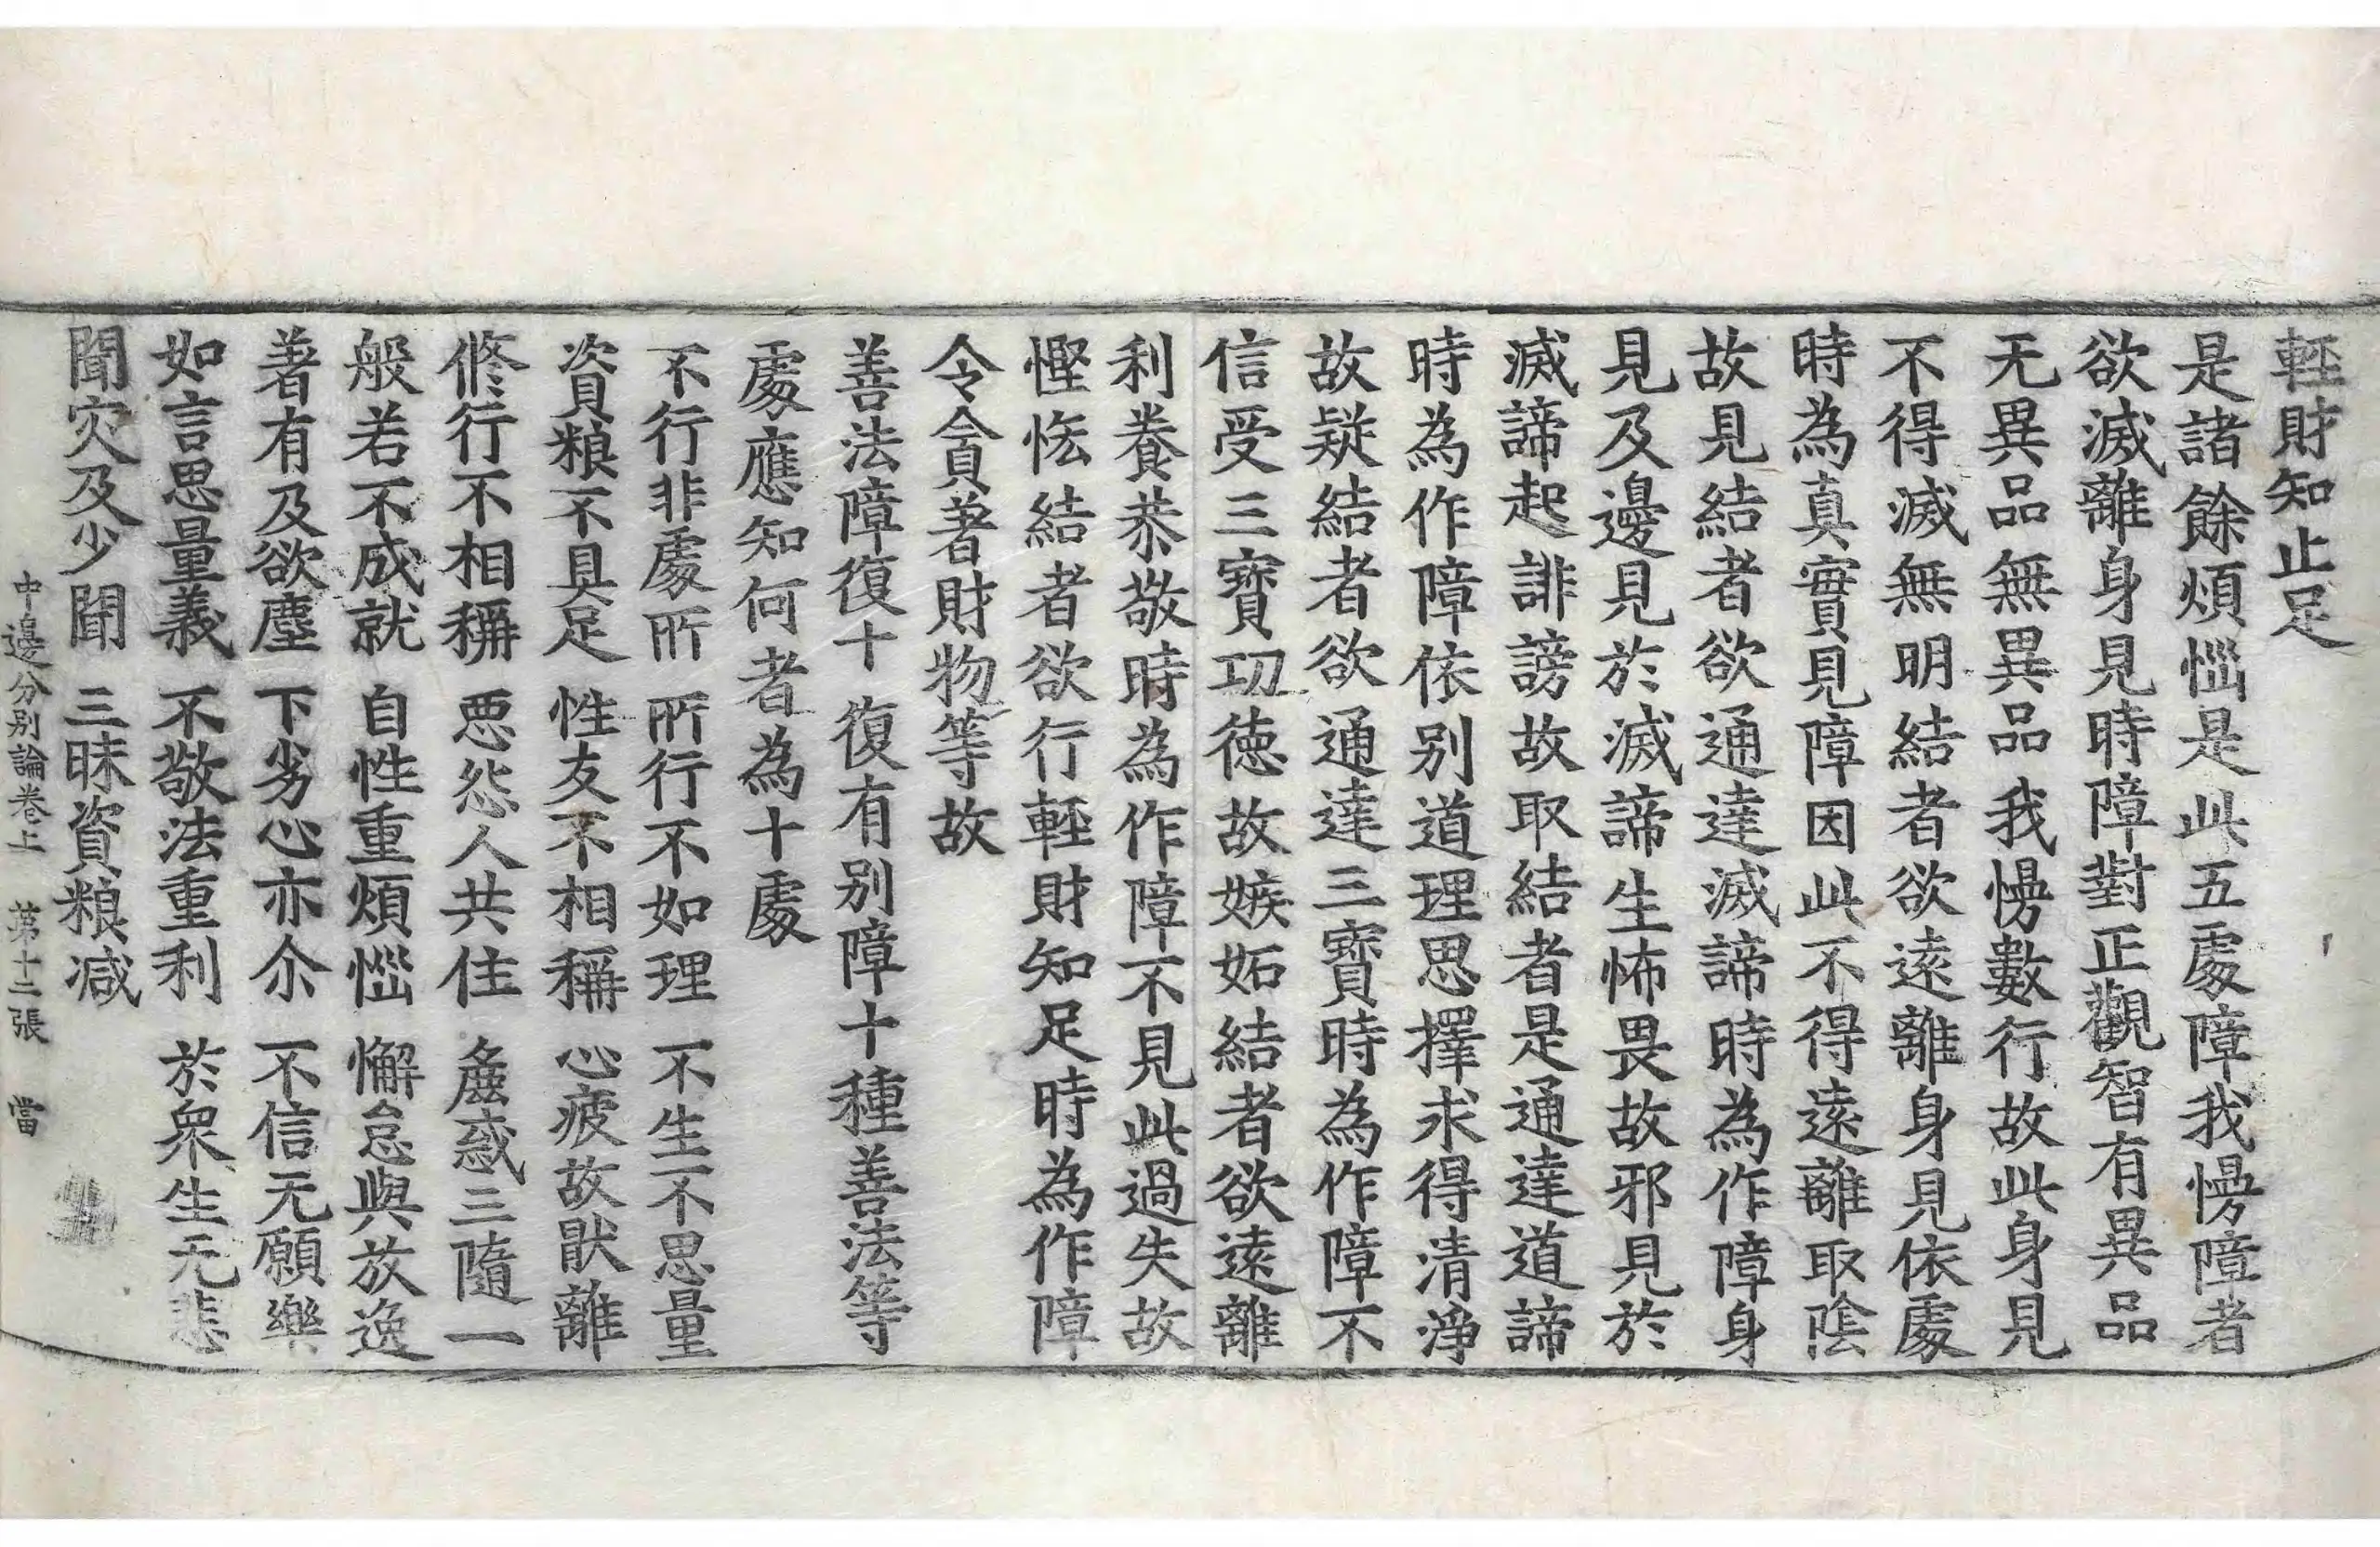 輕財知止足
是諸餘煩惱是此五處障我慢障者
欲滅離身見時障對正觀智有異品
无異品無異品我慢數行故此身見
不得滅無明結者欲遠離身見依處
時為真實見障因此不得遠離取陰
故見結者欲通達滅諦時為作障身
見及邊見於滅諦生怖畏故邪見於
滅諦起誹謗故取結者是通達道諦
時為作障依別道理思擇求得清淨
故疑結者欲通達三寶時為作障不
信受三寶功徳故嫉妬結者欲遠離
利養恭敬時為作障不見此過失故
慳悋結者欲行輕財知足時為作障
令貪著財物等故
善法障復十　復有別障十種善法等
處應知何者為十處
不行非處所　所行不如理　不生不思量
資粮不具足　性友不相稱　心疲故猒離
修行不相稱　惡怨人共住　麁惑三隨一
般若不成就　自性重煩惱　懈怠與放逸
著有及欲塵　下劣心亦尒　不信无願樂
如言思量義　不敬法重利　於衆生无悲
聞穴及少聞　三昧資粮减
中邊分別論卷上　第十二張　當